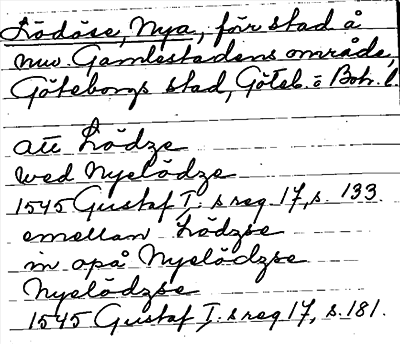 Lödöse, Nya, förr stad å
nuv. Gamlestadens område,
Göteborgs stad, Göteb. o Boh. l.
att Lödze
wed Nyelödze
1545 Gustaf I:s reg 17, s. 133.
emellan Lödzse
in opå Nyelödzse
Nyelödzse
1545 Gustaf I:s reg 17, s. 181.